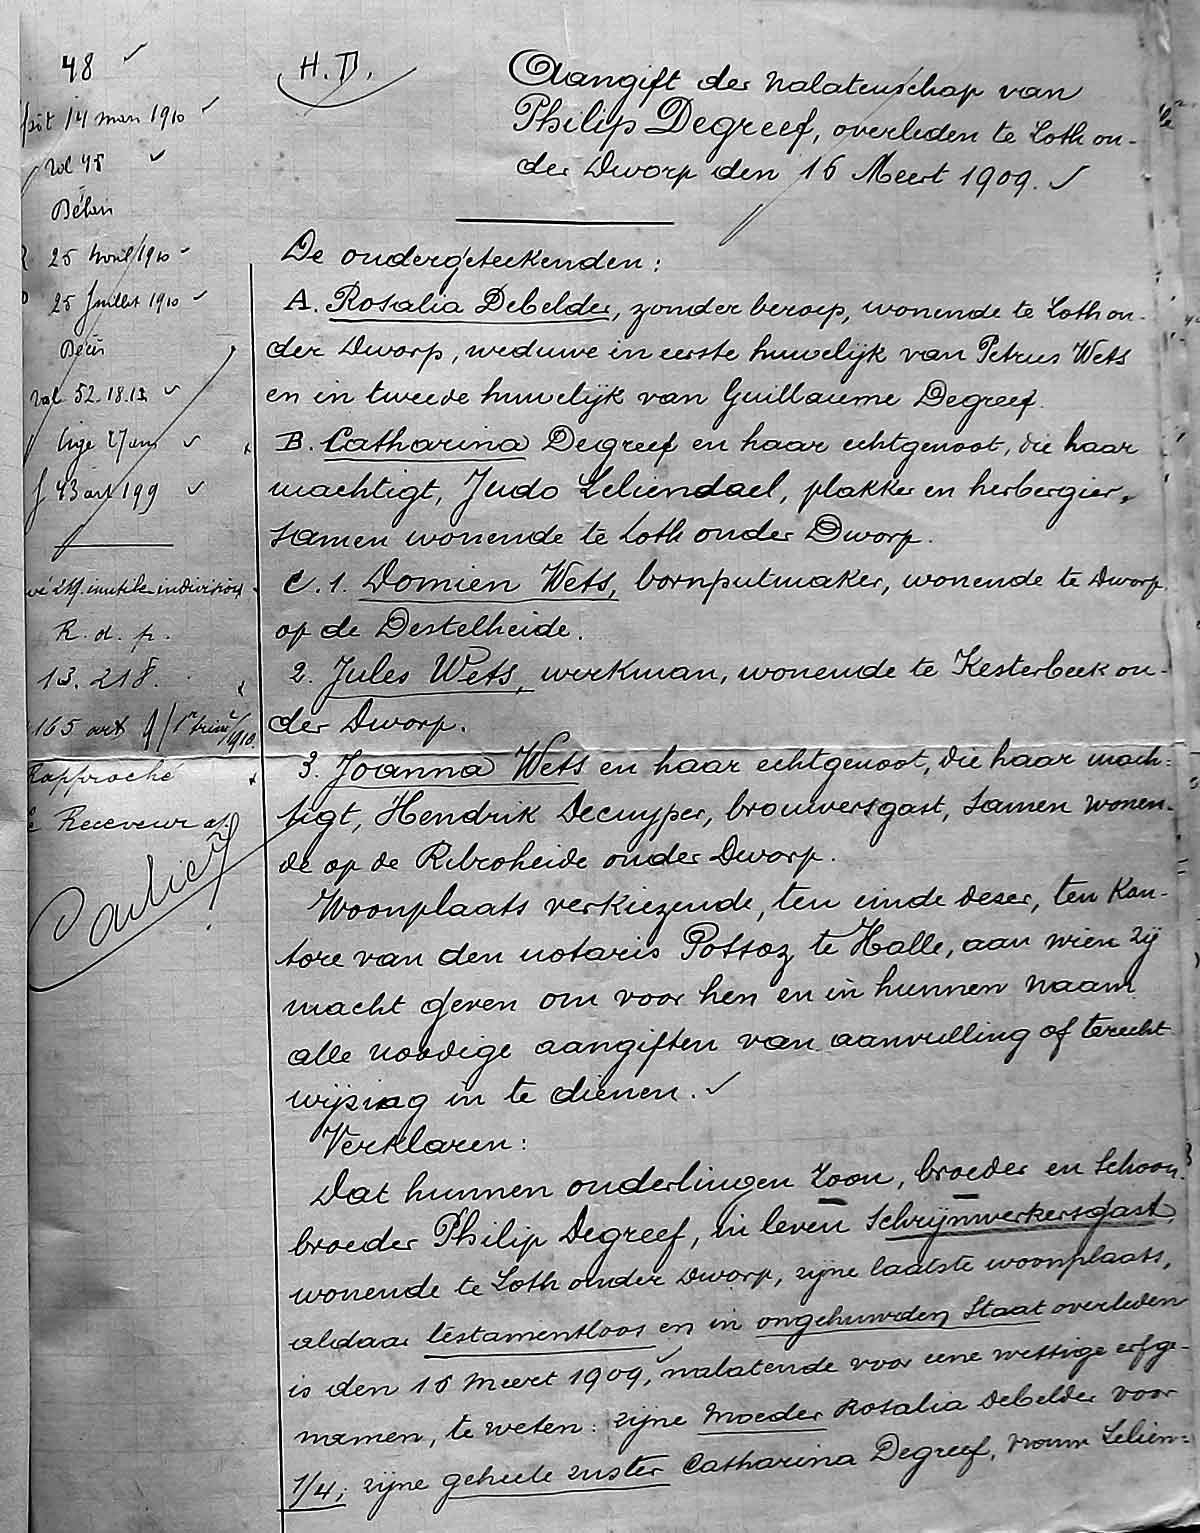 48
H. D.
Aangift der nalatenschap van
Philip Degreef, overleden te Loth on-
der Dworp den 16 Meert 1909.
14 mars 1910
vol 45
25 Avril 1910
25 Juillet 1910
val 52.18.13
lige 27 ans
43 art 199
inutile indivision
R. d. p.
13.218.
165 art 9
Rapproché
Receveur
De ondergeteekenden:
A. Rosalia Debelder, zonder beroep, wonende te Loth on-
der Dworp, weduwe in eerste huwelijk van Petrus Wets
en in tweede huwelijk van Guillaume Degreef.
B. Catharina Degreef en haar echtgenoot, die haar
machtigt, Judo Leliendael, plakker en herbergier,
samen wonende te Loth onder Dworp.
C. 1. Domien Wets, bornputmaker, wonende te Dworp
op de Destelheide.
2. Jules Wets, werkman, wonende te Kesterbeek on-
der Dworp.
3. Joanna Wets en haar echtgenoot, die haar mach-
tigt, Hendrik Decuyper, brouwersgast, samen wonen-
de op de Rilroheide onder Dworp.
Woonplaats verkiezende, ten einde dezer, ten Kan-
tore van den notaris Possoz te Halle, aan wien zij
macht geven om voor hen en in hunnen naam
alle noodige aangiften van aanvulling of terecht
wijzing in te dienen.
Verklaren:
Dat hunnen onderlingen zoon, broeder en schoon
broeder Philip Degreef, in leven schrijnwerkersgast,
wonende te Loth onder Dworp, zijne laatste woonplaats,
aldaar testamentloos en in ongehuwden staat overleden
is den 16 Meert 1909, nalatende voor eene wettige erfge-
namen, te weten: zijne moeder Rosalia Debelder voor
1/4; zijne geheele zuster Catharina Degreef, vrouw Lelien-